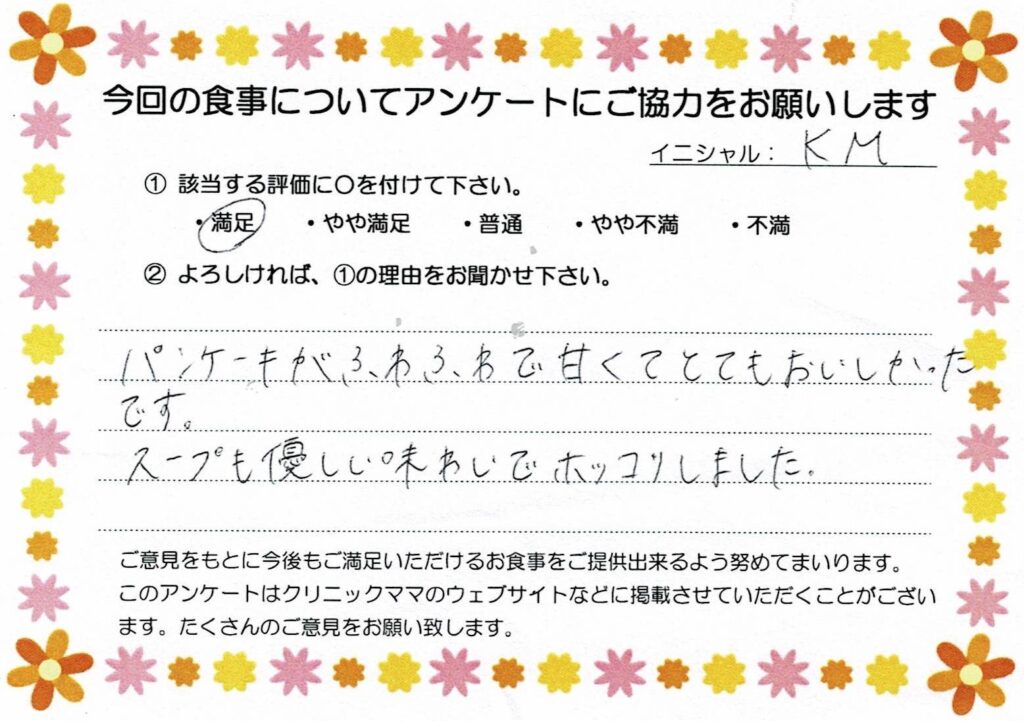 今回の食事についてアンケートにご協力をお願いします
イニシャル： KM
① 該当する評価に〇を付けて下さい。
・満足 ・やや満足 ・普通 ・やや不満 ・不満
② よろしければ、①の理由をお聞かせ下さい。
パンケーキがふわふわで甘くてとてもおいしかった
です。
スープも優しい味わいでホッコリしました。
ご意見をもとに今後もご満足いただけるお食事をご提供出来るよう努めてまいります。
このアンケートはクリニックママのウェブサイトなどに掲載させていただくことがござい
ます。たくさんのご意見をお願い致します。